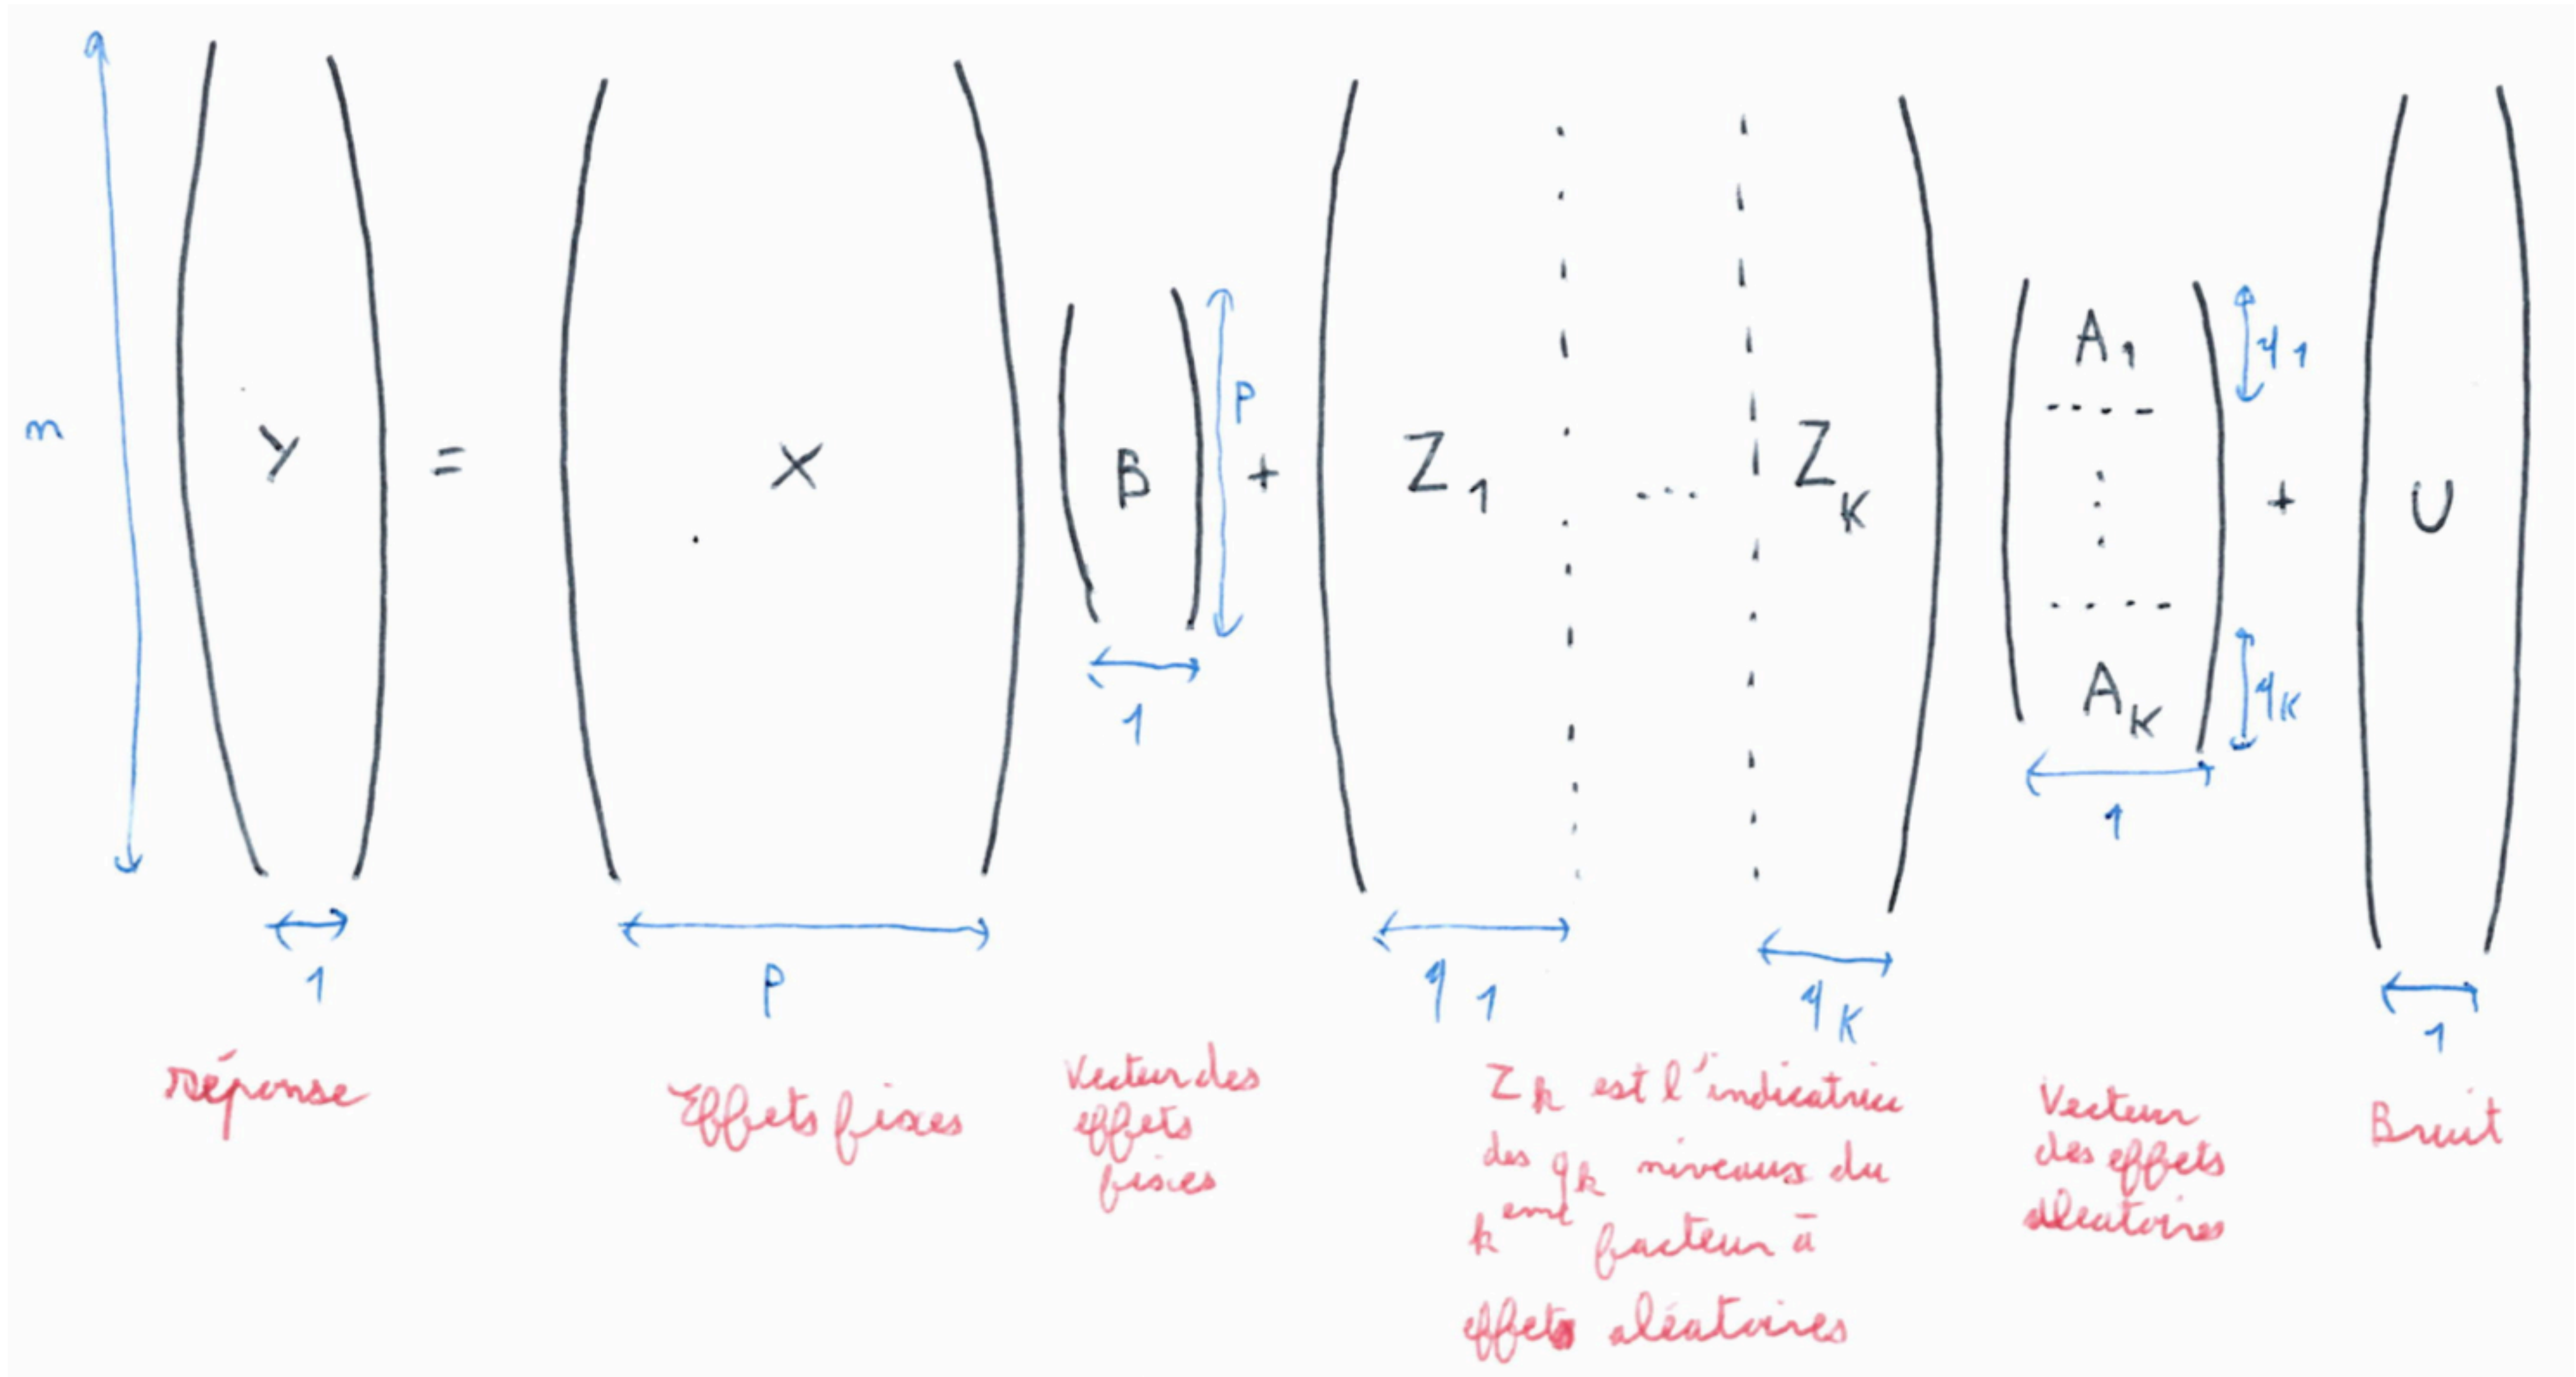 n
Y = X B + Z1 ... ZK A1 ⋮ AK + U
p
q1
qK
1
1
1 p q1 qK 1
réponse
Effets fixes
Vecteur des
effets
fixes
Zk est l'indicatrice
des qk niveaux du
keme facteur à
effets aléatoires
Vecteur
des effets
aléatoires
Bruit